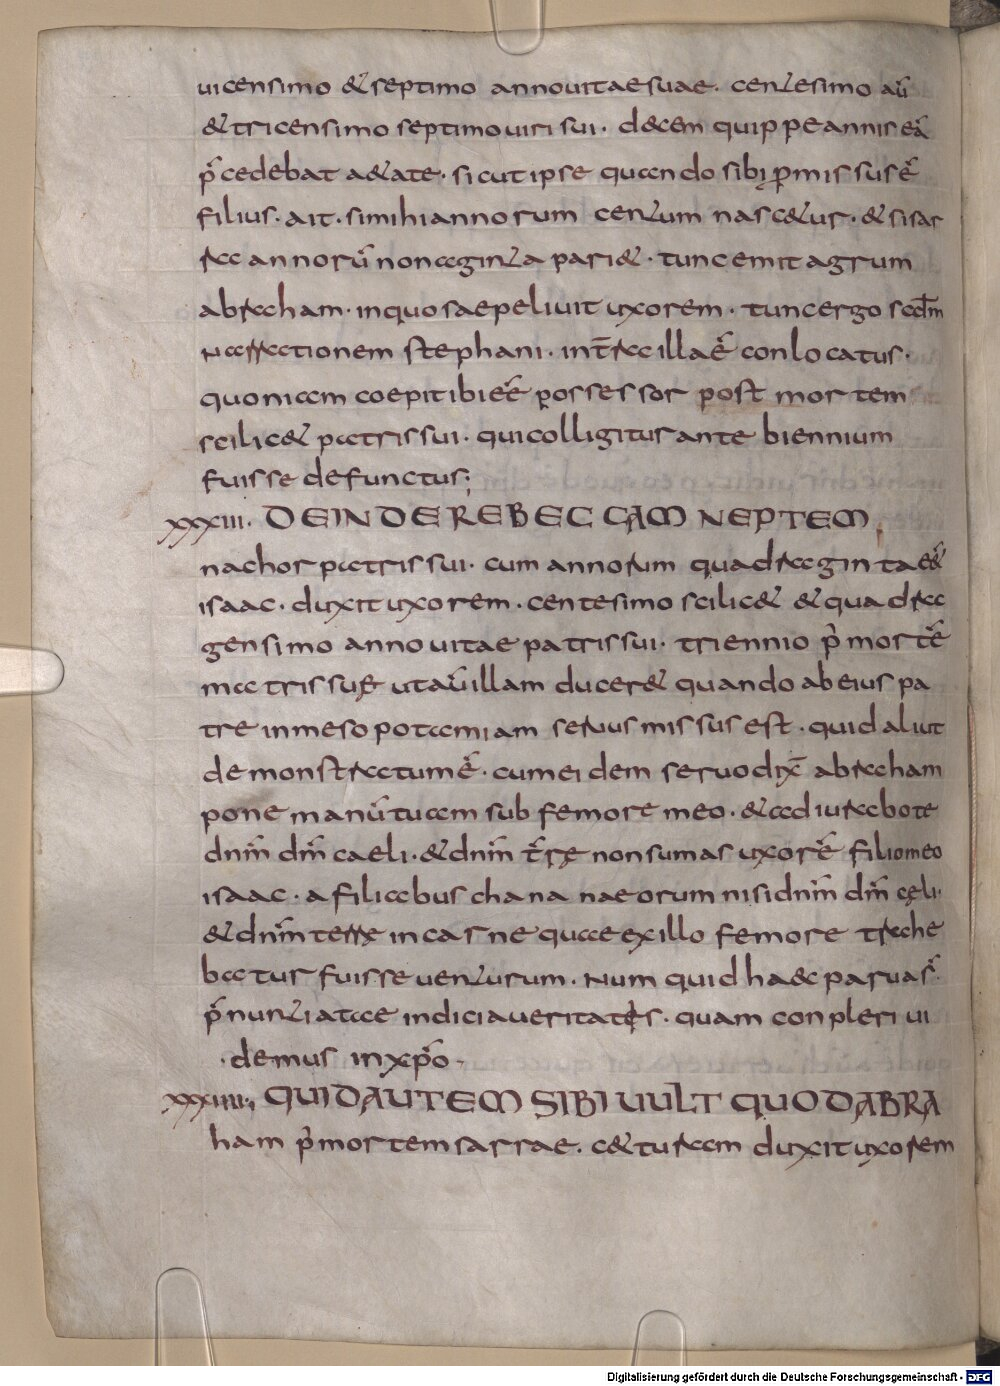 uicensimo & septimo anno uitae suae. centesimo aū
& tricensimo septimo uiri sui. decem quippe annis eā
p̄cedebat aetate. sicut ipse quando sibi ꝑmissus ē
filius. ait. si mihi annorum centum nascetur. & si sar
ra annorū nonaginta pariet. tunc emit agrum
abraham. in quo saepeliuit uxorem. tunc ergo scdm̄
narrationem stephani. in t̄ra illa ē conlocatus.
quoniam coepit ibi eē possessor post mortem
scilic& patris sui. qui colligitur ante biennium
fuisse defunctus;
xxxiii. DEINDE REBECCAM NEPTEM
nachor patris sui. cum annorum quadraginta eēt
isaac. duxit uxorem. centesimo scilic& & quadra
gensimo anno uitae patris sui. triennio p̄ mortē
matris suę ut aū illam ducer& quando ab eius pa
tre in mesopotamiam seruus missus est. quid aliut
demonstratum ē. cum eidem seruo dix̄ abraham
pone manū tuam sub femore meo. & adiurabo te
dnm̄ dm̄ caeli. & dnm̄ t̄rę non sumas uxorē filio meo
isaac. a filiabus chananaeorum nisi dnm̄ dm̄ cęli.
& dnm̄ terrę in carne quae ex illo femore trahe
batur fuisse uenturum. Num quid haec parua s̄
p̄nuntiatae indicia ueritatis. quam conpleri ui
.demus in xp̄o.
xxxiiii. QUID AUTEM SIBI UULT QUOD ABRA
ham p̄ mortem sarrae. c&turam duxit uxorem
Digitalisierung gefördert durch die Deutsche Forschungsgemeinschaft - DFG